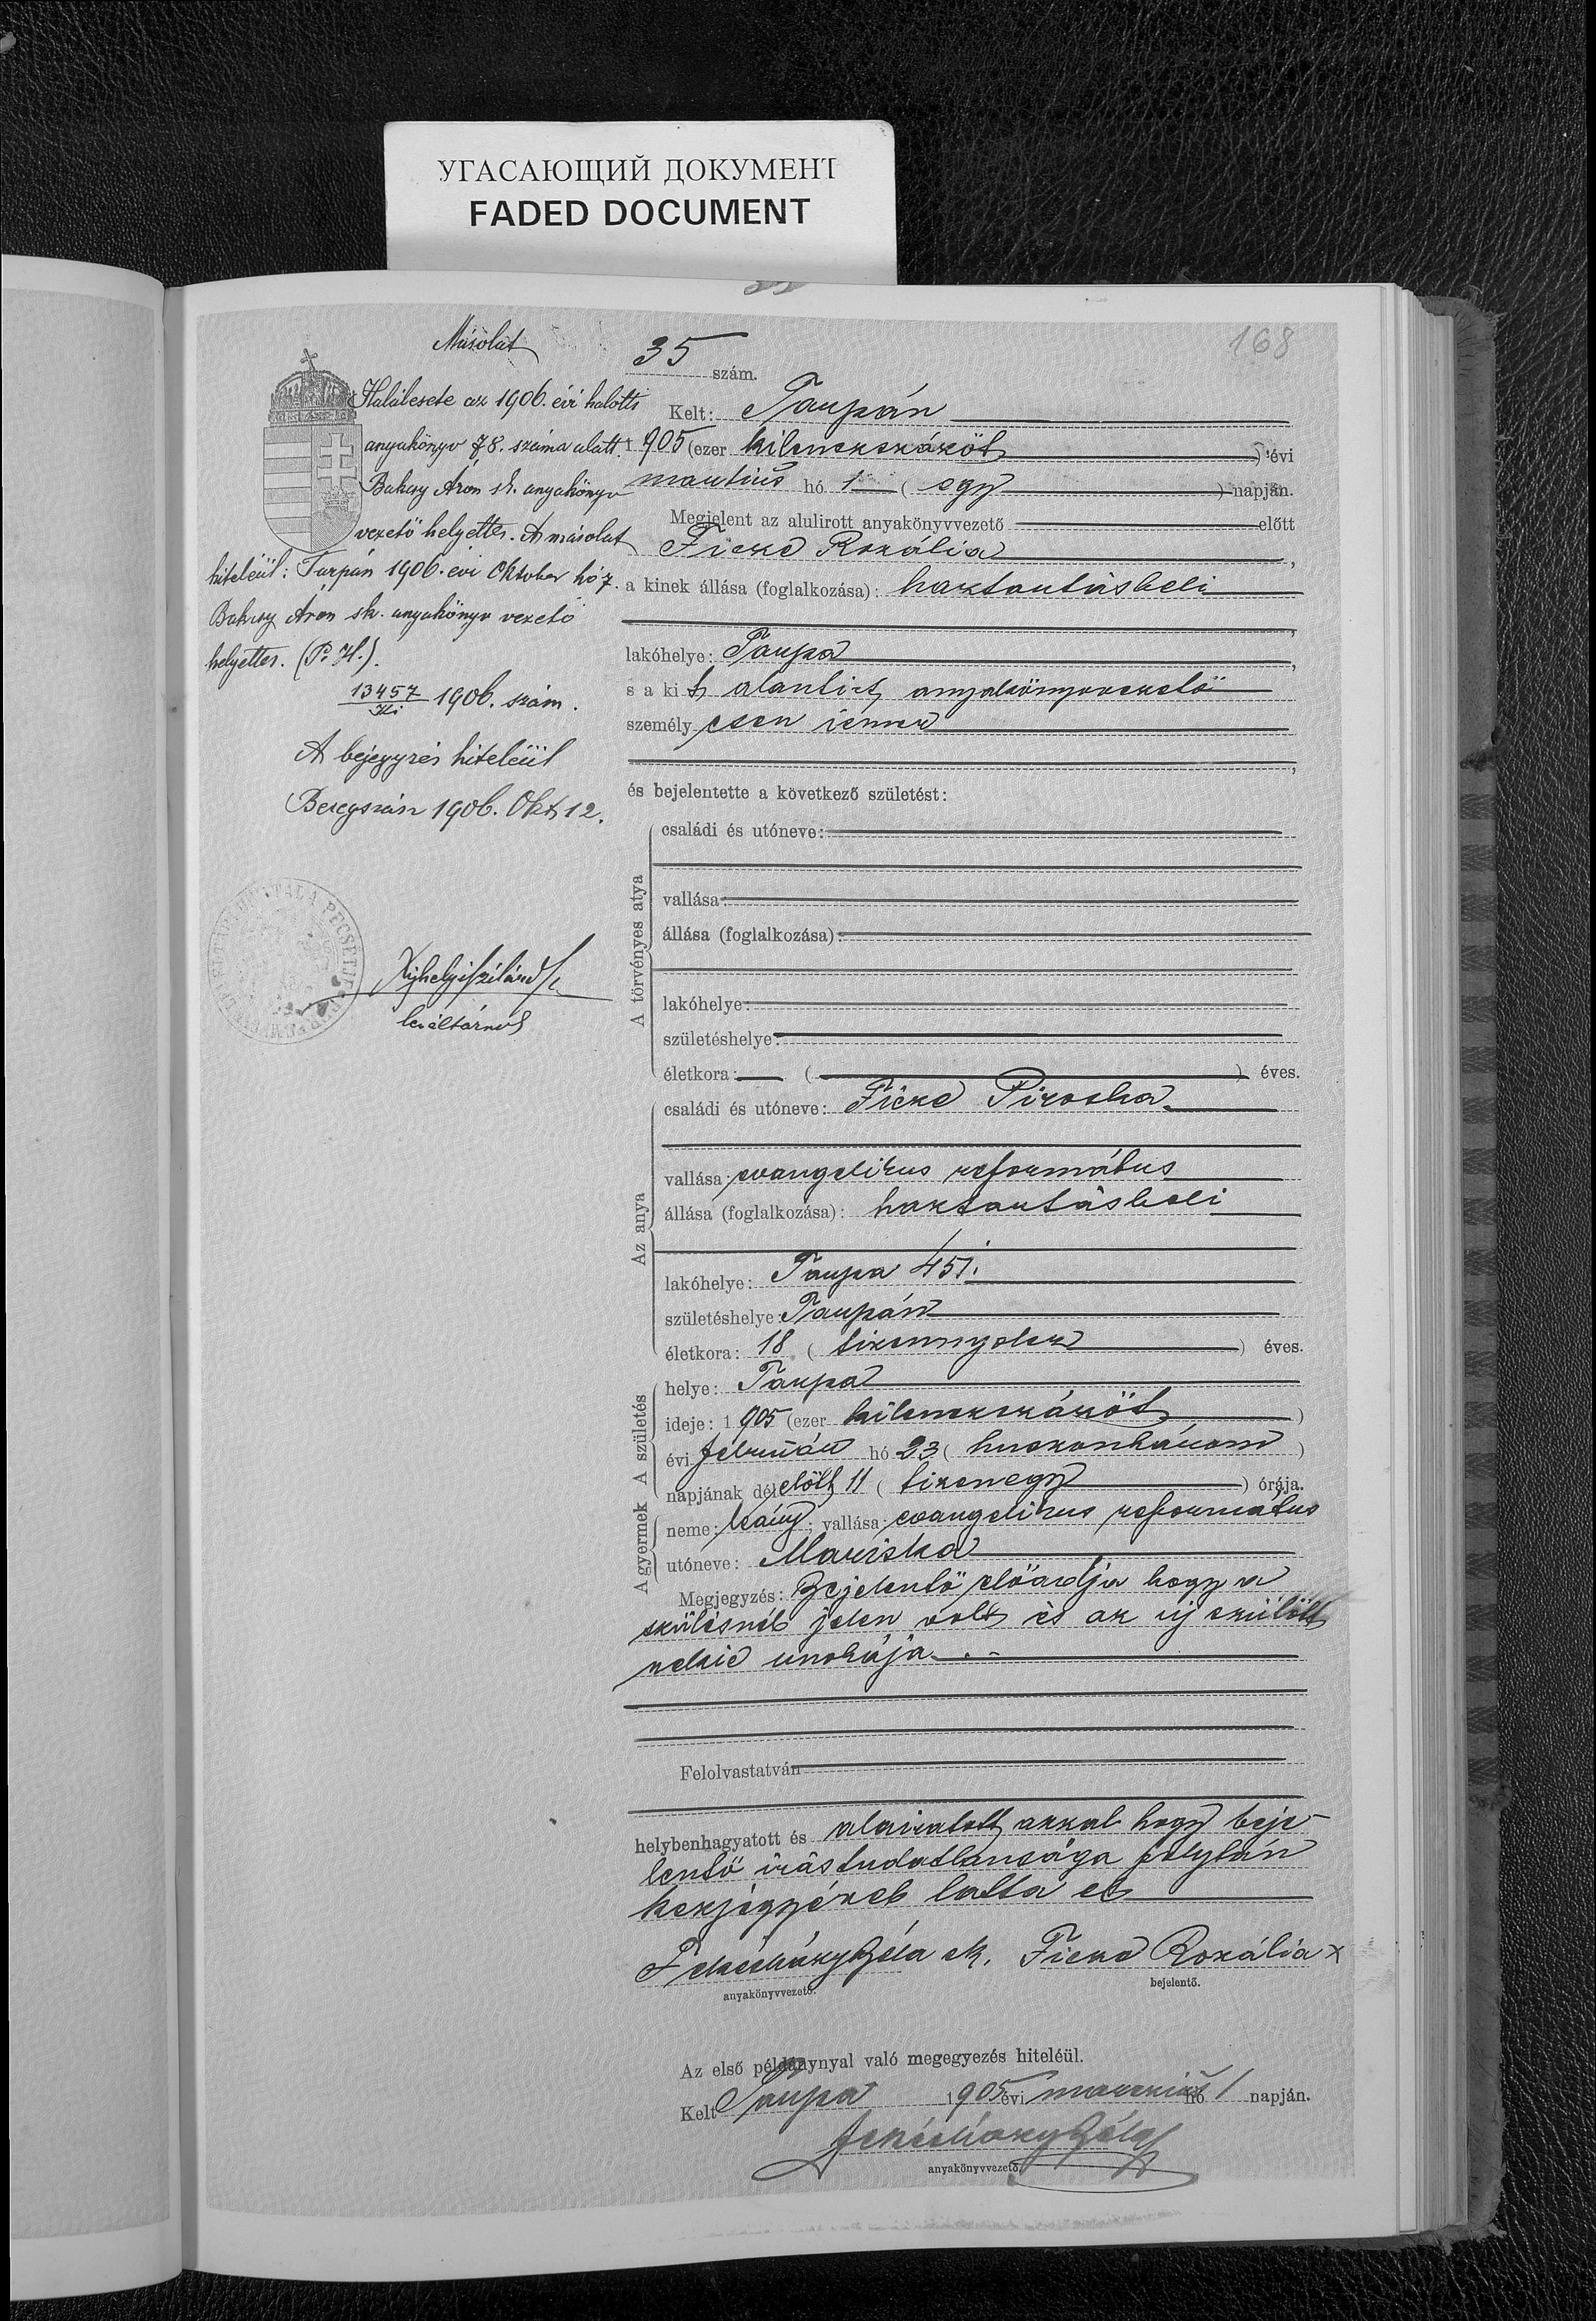 УГАСАЮЩИЙ ДОКУМЕНТ
FADED DOCUMENT
168
Másolat
Halálesete az 1906. évi halotti
anyakönyv 78. száma alatt.
Bakcsy Áron sk. anyakönyv
vezető helyettes. A másolat
hiteléül: Tarpán 1906. évi Oktober hó 7.
Bakcsy Áron sk. anyakönyv vezető
helyettes. (P. H.).
13457/Ki 1906. szám.
A bejegyzés hiteléül
Beregszász 1906. Okt 12.
levéltárnok
35 szám.
Kelt: Tarpán
1905 (ezer kilenczszázöt ) évi
martius hó 1 ( egy ) napján.
Megjelent az alulirott anyakönyvvezető előtt
Ficze Rozália,
a kinek állása (foglalkozása): háztartásbeli
,
lakóhelye: Tarpa,
s a kit alantirt anyakönyvvezető
személyesen ismer
,
és bejelentette a következő születést:
A törvényes atya
családi és utóneve:
vallása:
állása (foglalkozása):
lakóhelye:
születéshelye:
életkora: ( ) éves.
Az anya
családi és utóneve: Ficze Piroska
vallása: evangelikus református
állása (foglalkozása): háztartásbeli
lakóhelye: Tarpa 451.
születéshelye: Tarpán
életkora: 18 ( tizennyolcz ) éves.
A születés
helye: Tarpa
ideje: 1905 (ezer kilenczszázöt )
évi február hó 23 ( huszonhárom )
napjának délelőtt 11 ( tizenegy ) órája.
A gyermek
neme: leány; vallása: evangelikus református
utóneve: Mariska
Megjegyzés: Bejelentő előadja hogy a
szülésnél jelen volt és az uj szülött
nekie unokája . -
Felolvastatván
helybenhagyatott és aláiratott azzal hogy beje-
lentő irástudatlansága folytán
kézjegyével látta el
Béla sk. Ficze Rozália x
anyakönyvvezető. bejelentő.
Az első példánynyal való megegyezés hiteléül.
Kelt Tarpa 1905 évi marczius hó 1 napján.
Béla
anyakönyvvezető.